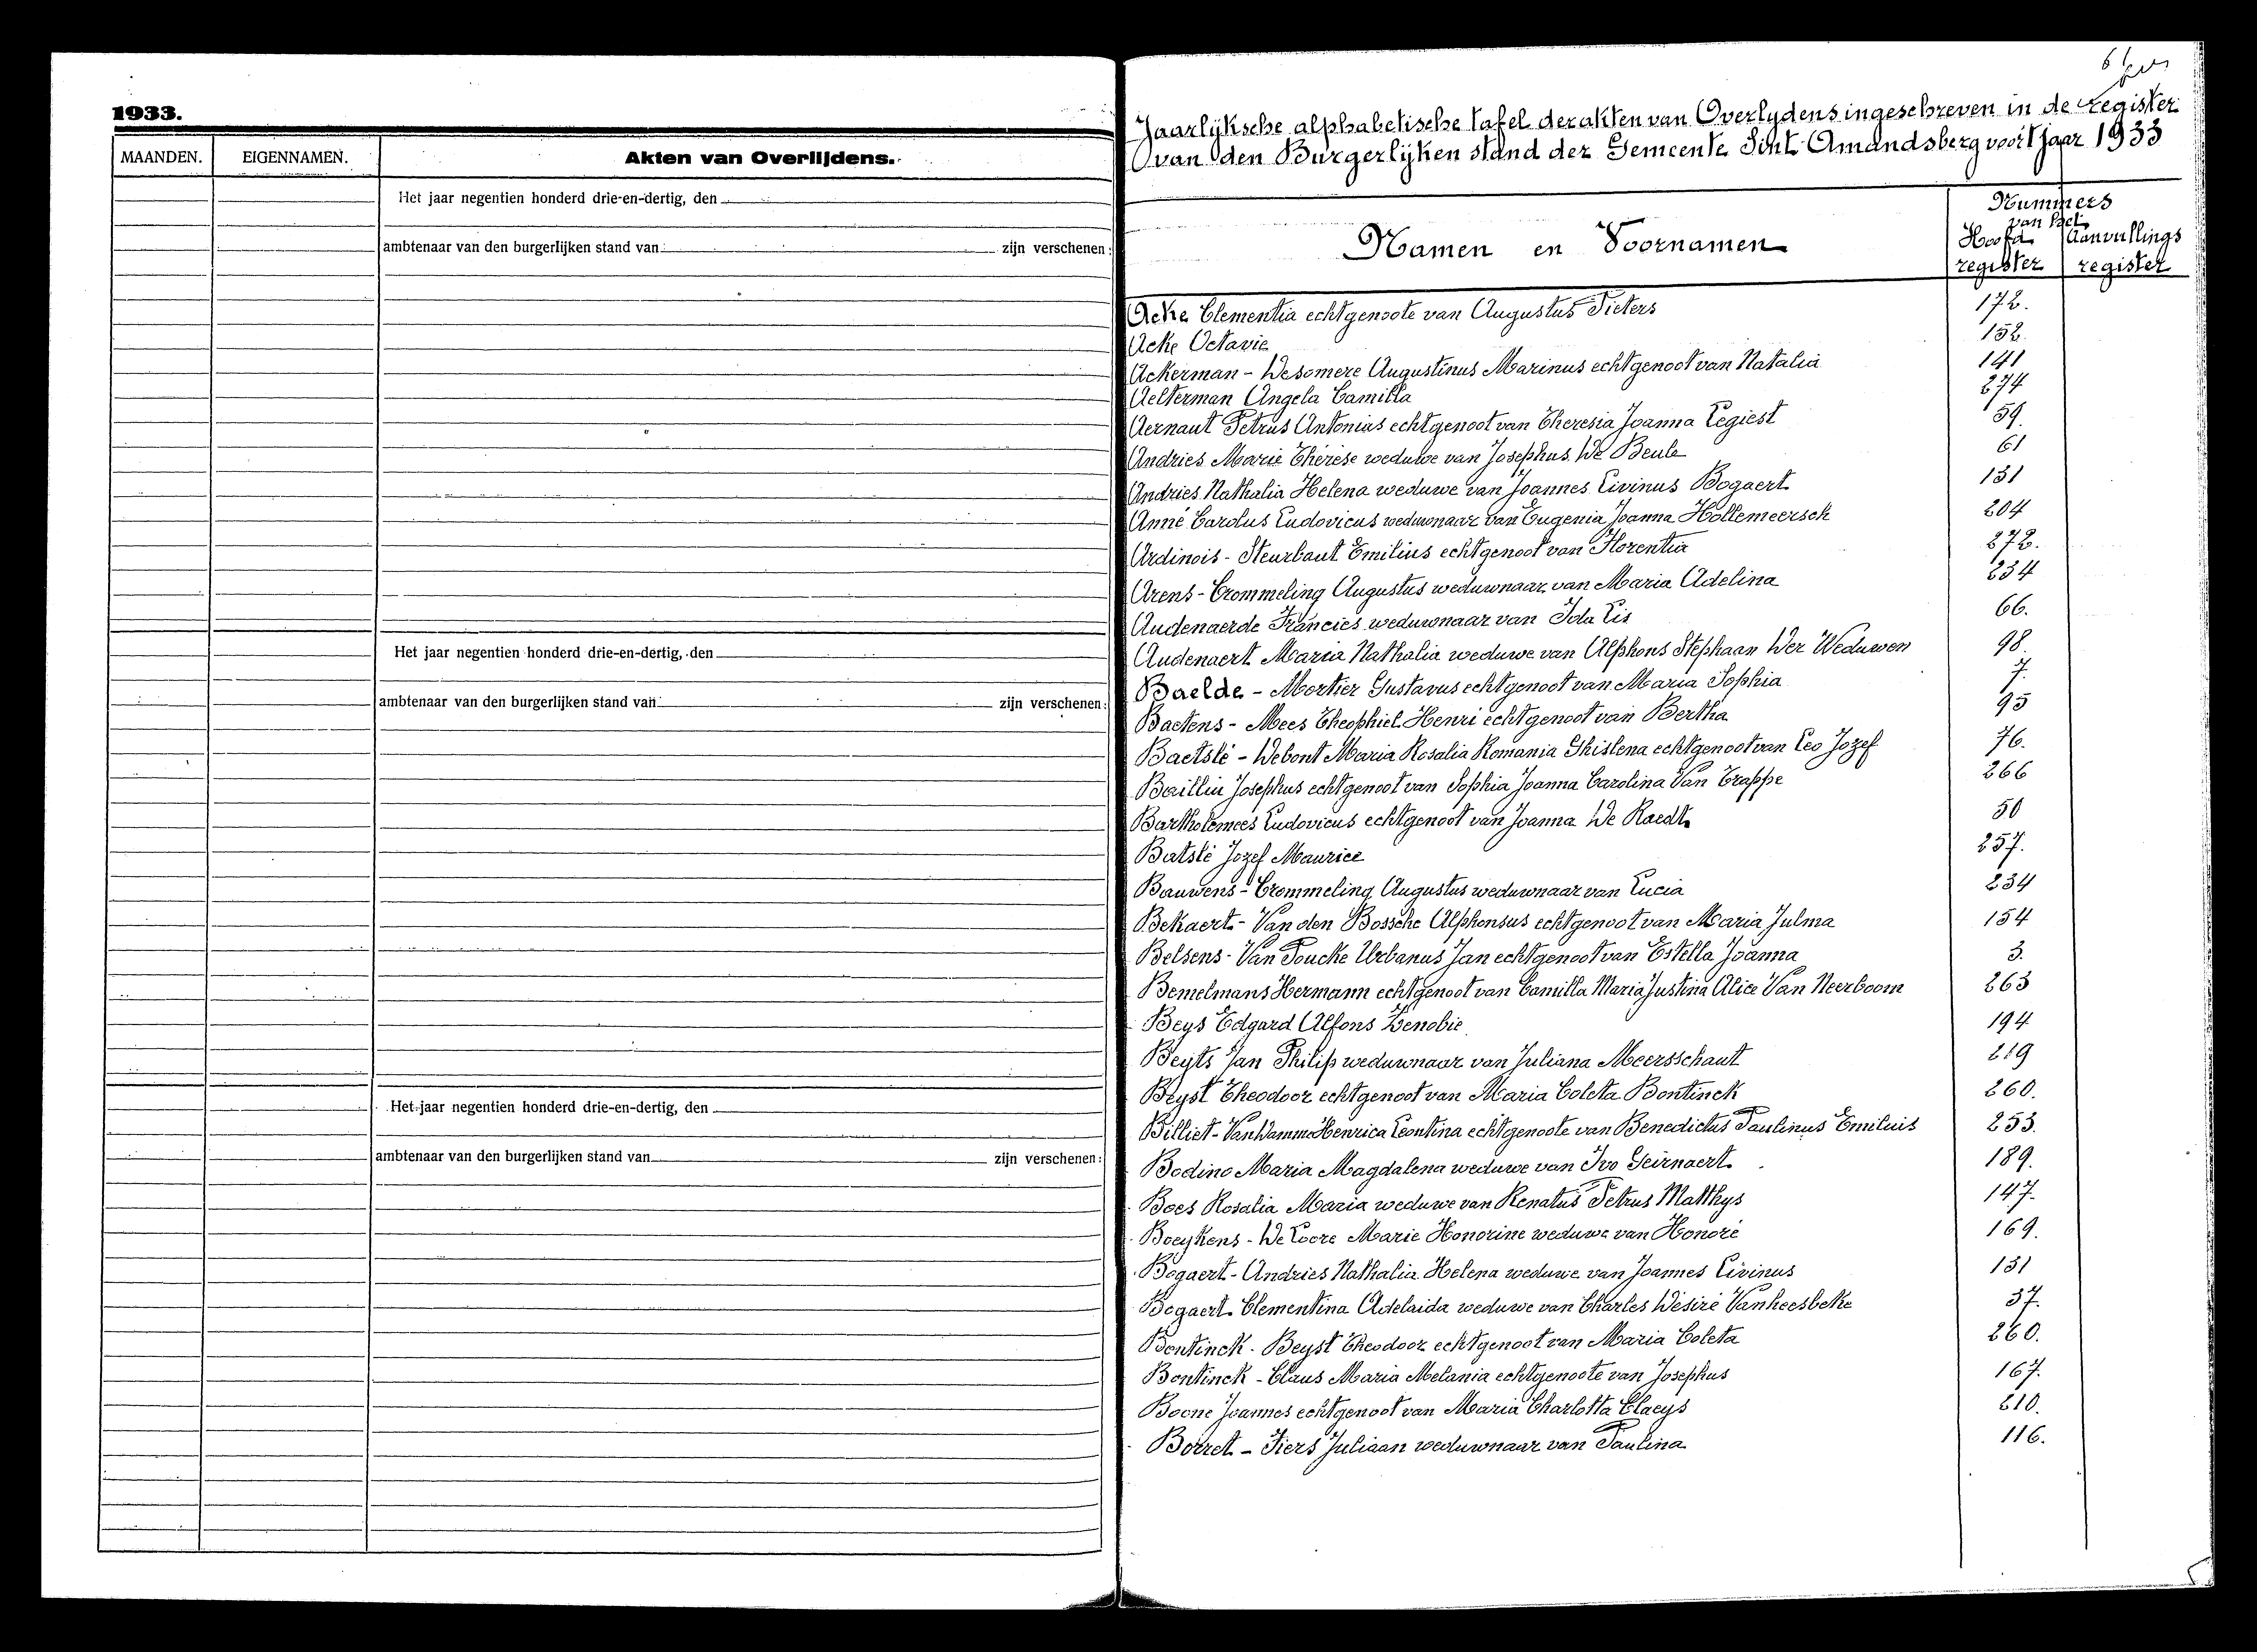 1933.
MAANDEN. EIGENNAMEN. Akten van Overlijdens.
Het jaar negentien honderd drie-en-dertig, den
ambtenaar van den burgerlijken stand van zijn verschenen:
Het jaar negentien honderd drie-en-dertig, den
ambtenaar van den burgerlijken stand van zijn verschenen:
Het jaar negentien honderd drie-en-dertig, den
ambtenaar van den burgerlijken stand van zijn verschenen:
Jaarlijksche alphabetische tafel der akten van Overlydens ingeschreven in de register
van den Burgerlijken stand der Gemeente Sint Amandsberg voor 't jaar 1933
Namen en Voornamen
Nummers
van het
Hoofd Aanvullings
register register
Acke Clementia echtgenoote van Augustus Pieters 172.
Acke Octavie 152.
Ackerman - Desomere Augustinus Marinus echtgenoot van Natalia 141
Aelterman Angela Camilla 274
Aernaut Petrus Antonius echtgenoot van Theresia Joanna Legiest 59.
Andries Marie Thérèse weduwe van Josephus De Beule 61
Andries Nathalia Helena weduwe van Joannes Livinus Bogaert 131
Anné Carolus Ludovicus weduwnaar van Eugenia Joanna Hollemeersch 204
Ardinois - Steurbaut Emilius echtgenoot van Florentia 272.
Arens - Crommeling Augustus weduwnaar van Maria Adelina 234
Audenaerde Francies weduwnaar van Ida Lis 66.
Audenaert Maria Nathalia weduwe van Alphons Stephaan Der Weduwen 98.
Baelde - Mortier Gustavus echtgenoot van Maria Sophia 7.
Baetens - Mees Theophiel Henri echtgenoot van Bertha 95
Baetslé - Debont Maria Rosalia Romania Ghislena echtgenoot van Leo Jozef 76.
Baillin Josephus echtgenoot van Sophia Joanna Carolina Van Trappe 266
Bartholomeés Ludovicus echtgenoot van Joanna De Raedt 50
Batslé Jozef Maurice 257.
Bauwens - Crommeling Augustus weduwnaar van Lucia 234
Bekaert - Van den Bossche Alphonsus echtgenoot van Maria Julma 154
Belsens - Van Poucke Urbanus Jan echtgenoot van Estella Joanna 3.
Bemelmans Hermann echtgenoot van Camilla Maria Justina Alice Van Neerboom 263
Beys Edgard Alfons Zenobie 194
Beyts Jan Philip weduwnaar van Juliana Meersschaut 219
Beyst Theodoor echtgenoot van Maria Coleta Bontinck 260.
Billiet - Van Damme Henrica Leontina echtgenoote van Benedictus Paulinus Emiluis 253.
Bodino Maria Magdalena weduwe van Ivo Geirnaert 189.
Boes Rosalia Maria weduwe van Renatus Petrus Matthys 147.
Boeykens - De Coore Marie Honorine weduwe van Honoré 169.
Bogaert - Andries Nathalia Helena weduwe van Joannes Livinus 131
Bogaert Clementina Adelaida weduwe van Charles Désiré Vanheesbeke 37.
Bontinck - Beyst Theodoor echtgenoot van Maria Coleta 260.
Bontinck - Claus Maria Melania echtgenoote van Josephus 167.
Boone Joannes echtgenoot van Maria Charlotta Claeys 210.
Borret - Fiers Juliaan weduwnaar van Paulina 116.